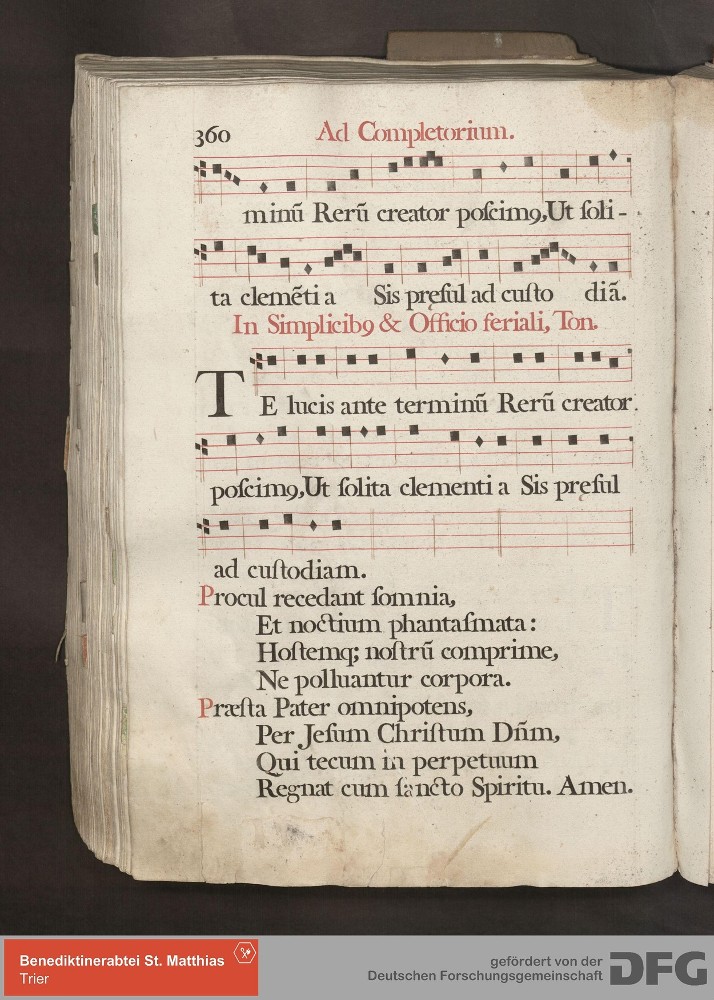 360 Ad Completorium.
minũ Rerũ creator poſcimꝯ,Ut ſoli-
ta clemẽti a Sis pręſul ad cuſto diã.
In Simplicibꝯ & Officio feriali, Ton.
TE lucis ante terminũ Rerũ creator.
poſcimꝯ,Ut ſolita clementi a Sis pręſul
ad cuſtodiam.
Procul recedant ſomnia,
Et noctium phantaſmata:
Hoſtemq; noſtrũ comprime,
Ne polluantur corpora.
Præſta Pater omnipotens,
Per Jeſum Chriſtum Dñm,
Qui tecum in perpetuum
Regnat cum ſancto Spiritu. Amen.
Benediktinerabtei St. Matthias
Trier
gefördert von der
Deutschen Forschungsgemeinschaft DFG